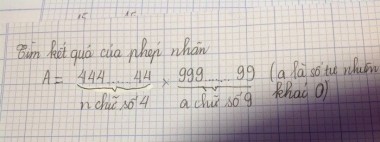 Tìm kết quả của phép nhân
A = 444.....44 × 999......99 (a là số tự nhiên
n chữ số 4 a chữ số 9 khác 0)